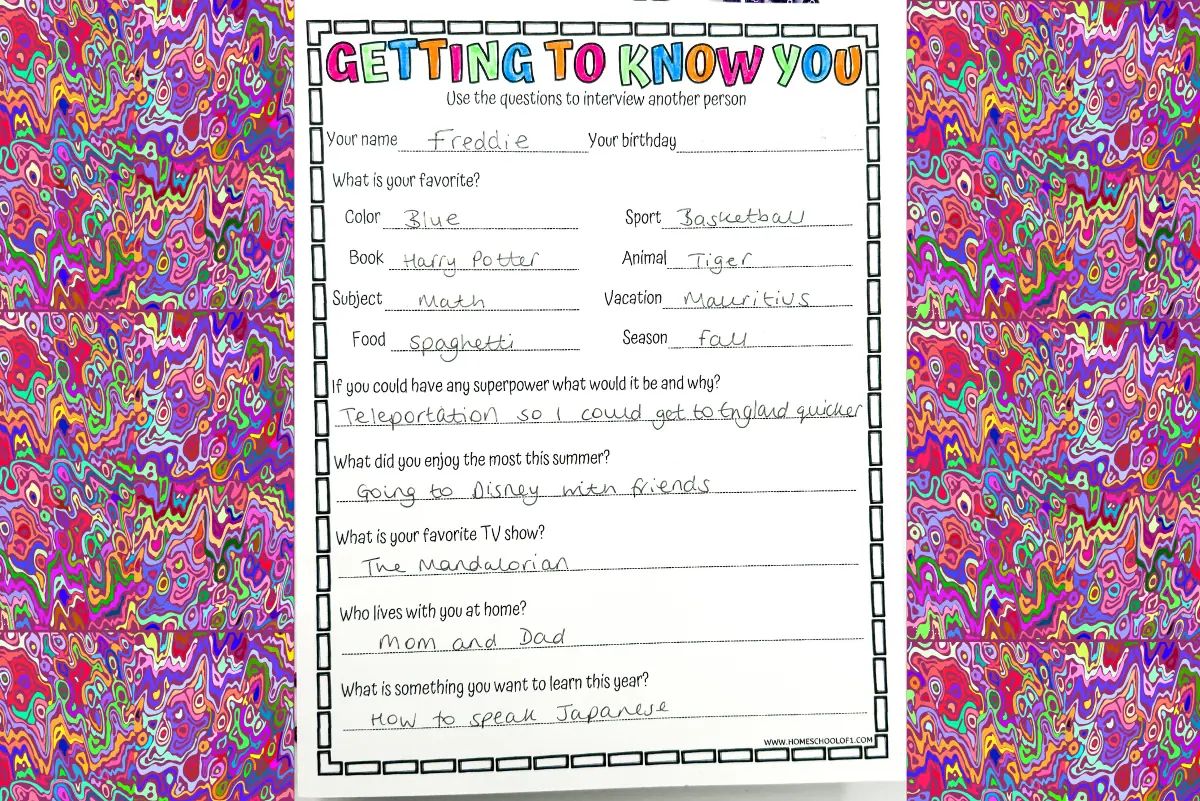 GETTING TO KNOW YOU
Use the questions to interview another person
Your name Freddie Your birthday
What is your favorite?
Color Blue Sport Basketball
Book Harry Potter Animal Tiger
Subject Math Vacation Mauritius
Food spaghetti Season fall
If you could have any superpower what would it be and why?
Teleportation so I could get to England quicker
What did you enjoy the most this summer?
Going to Disney with friends
What is your favorite TV show?
The Mandalorian
Who lives with you at home?
Mom and Dad
What is something you want to learn this year?
How to speak Japanese
WWW.HOMESCHOOLOF1.COM